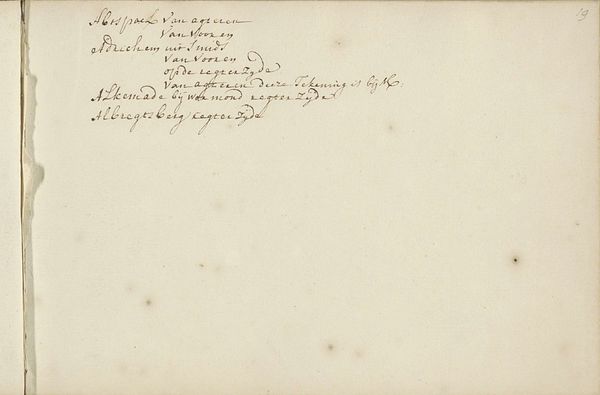 19
Abtspoel Van agteren
Van Vooren
Adrichem uit Smids
Van Vooren
op de regter Zyde
Van agteren deeze Tekening is bij
Alkemade bij warmond regter Zijde
Albregtsberg regter Zijde